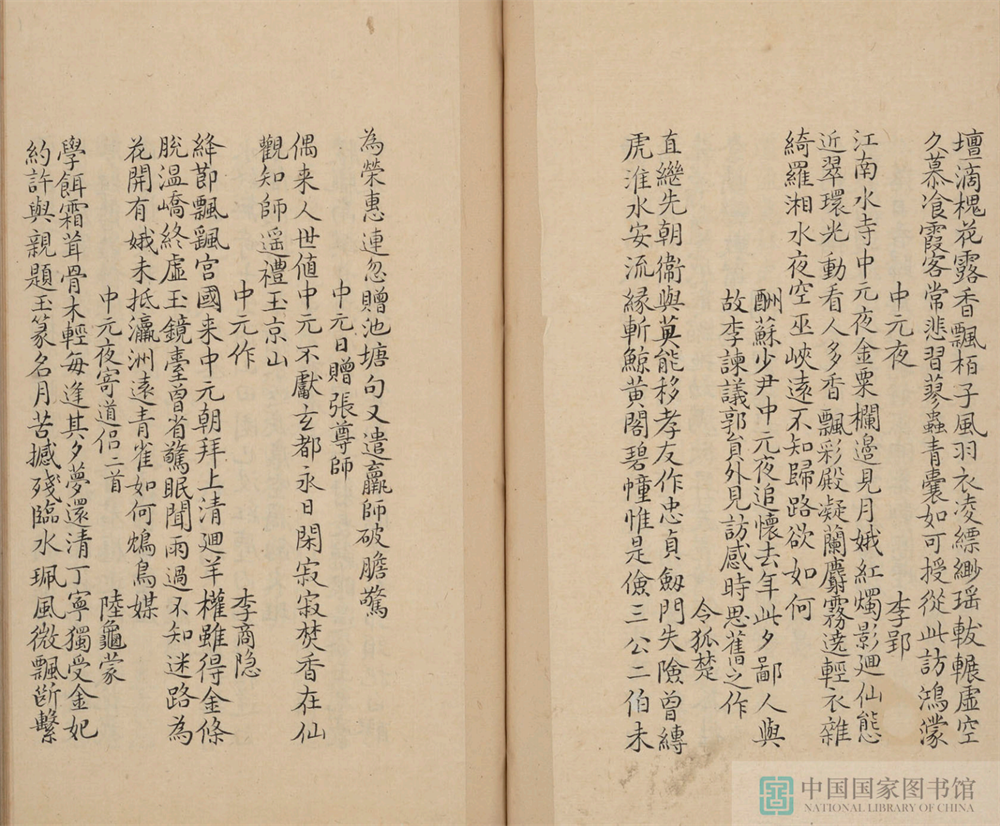 壇滴槐花露香飄栢子風羽衣凌縹緲瑶轂輾虛空
久慕飡霞客常悲習蓼蟲青囊如可授從此訪鴻濛
中元夜 李郢
江南水寺中元夜金粟欄邉見月娥紅燭影廻仙態
近翠環光動看人多香飄彩殿凝蘭麝霧遶輕衣雜
綺羅湘水夜空巫峽遠不知歸路欲如何
酬蘇少尹中元夜追懷去年此夕鄙人與
故李諫議郭貟外見訪感時思舊之作
令狐楚
直繼先朝衞與英能移孝友作忠貞劔門失險曾縛
虎淮水安流緣斬鯨黄閣碧幢惟是儉三公二伯未
為榮惠連忽贈池塘句又遣羸師破膽驚
中元日贈張尊師
偶来人世值中元不獻玄都永日閑寂寂焚香在仙
觀知師遥禮玉京山
中元作 李商隐
絳節飄颻宫國来中元朝拜上清廻羊權雖得金條
脫温嶠終虛玉鏡臺曾省驚眠聞雨過不知迷路為
花開有娥未抵瀛洲遠青雀如何鴆鳥媒
中元夜寄道侣二首 陸龜蒙
學餌霜茸骨木輕每逢其夕夢還清丁寧獨受金妃
約許與親題玉篆名月苦撼殘臨水珮風微飄斷繫
中国国家图书馆
NATIONAL LIBRARY OF CHINA